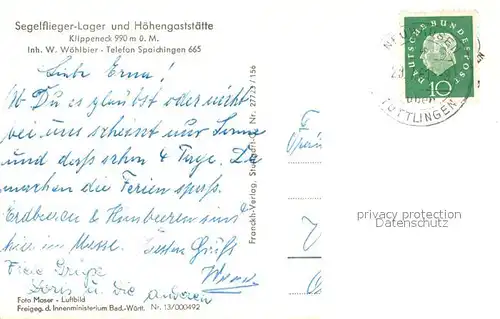 Segelflieger-Lager und Höhengaststätte
Klippeneck 990 m ü. M.
Inh. W. Wöhlbier - Telefon Spaichingen 665
Liebe Erna!
Ob Du es glaubst oder nicht
bei uns scheint nur Sonne
und daß schon 4 Tage. Da
machen die Ferien spaß.
Erdbeeren & Himbeeren sind
hier in Masse. Besten Gruß
Freie Grüße
Doris u. die anderen
Foto Moser - Luftbild
Freigeg. d. Innenministerium Bad.-Württ. Nr. 13/000492
Franckh-Verlag, Stuttgart-O Nr. 27/23/156
DEUTSCHE BUNDESPOST
10
(TUTTLINGEN)
privacy protection
Datenschutz